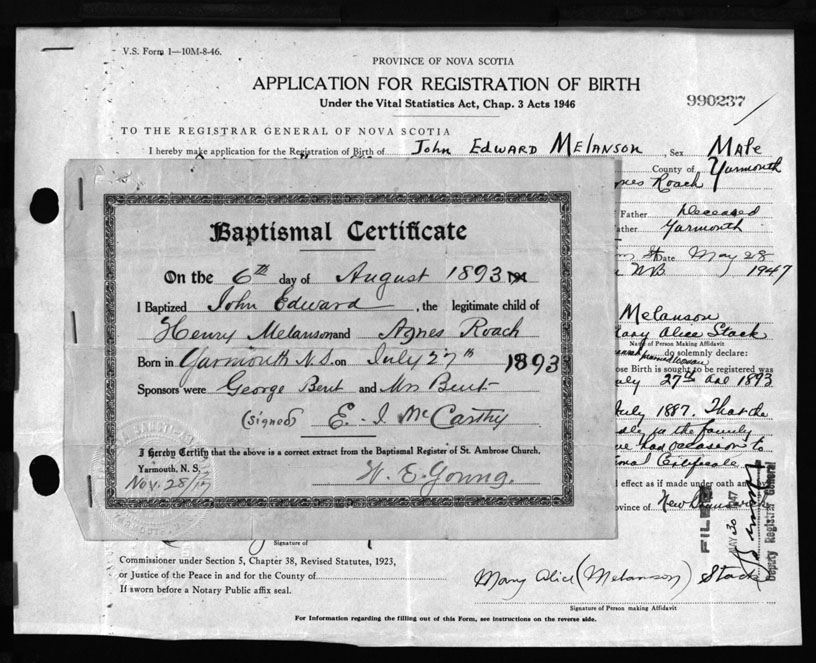 V.S. Form 1—10M-8-46.
PROVINCE OF NOVA SCOTIA
APPLICATION FOR REGISTRATION OF BIRTH
Under the Vital Statistics Act, Chap. 3 Acts 1946
990237
TO THE REGISTRAR GENERAL OF NOVA SCOTIA
I hereby make application for the Registration of Birth of John Edward Melanson, Sex Male
County of Yarmouth
Agnes Roach
Father Deceased
Yarmouth
St Date May 28
NB 1947
Melanson
Mary Alice Stack
Name of Person Making Affidavit
do solemnly declare:
ose Birth is sought to be registered was
July 27th A.D. 1893
July 1887. That the
in the family
had occasion to
Certificate
l effect as if made under oath an
ovince of New Brunswick
Baptismal Certificate
On the 6th day of August 1893
I Baptized John Edward, the legitimate child of
Henry Melanson and Agnes Roach
Born in Yarmouth N.S. on July 27th 1893
Sponsors were George Bent and Mrs Bent
(Signed) E. J. McCarthy
I Hereby Certify that the above is a correct extract from the Baptismal Register of St. Ambrose Church,
Yarmouth, N. S.
Nov. 28/17
W. E. Young.
FILED
MAY 30 1947
Deputy Registrar General
Signature of
Commissioner under Section 5, Chapter 38, Revised Statutes, 1923,
or Justice of the Peace in and for the County of
If sworn before a Notary Public affix seal.
Mary Alice (Melanson) Stack
Signature of Person making Affidavit
For Information regarding the filling out of this Form, see instructions on the reverse side.